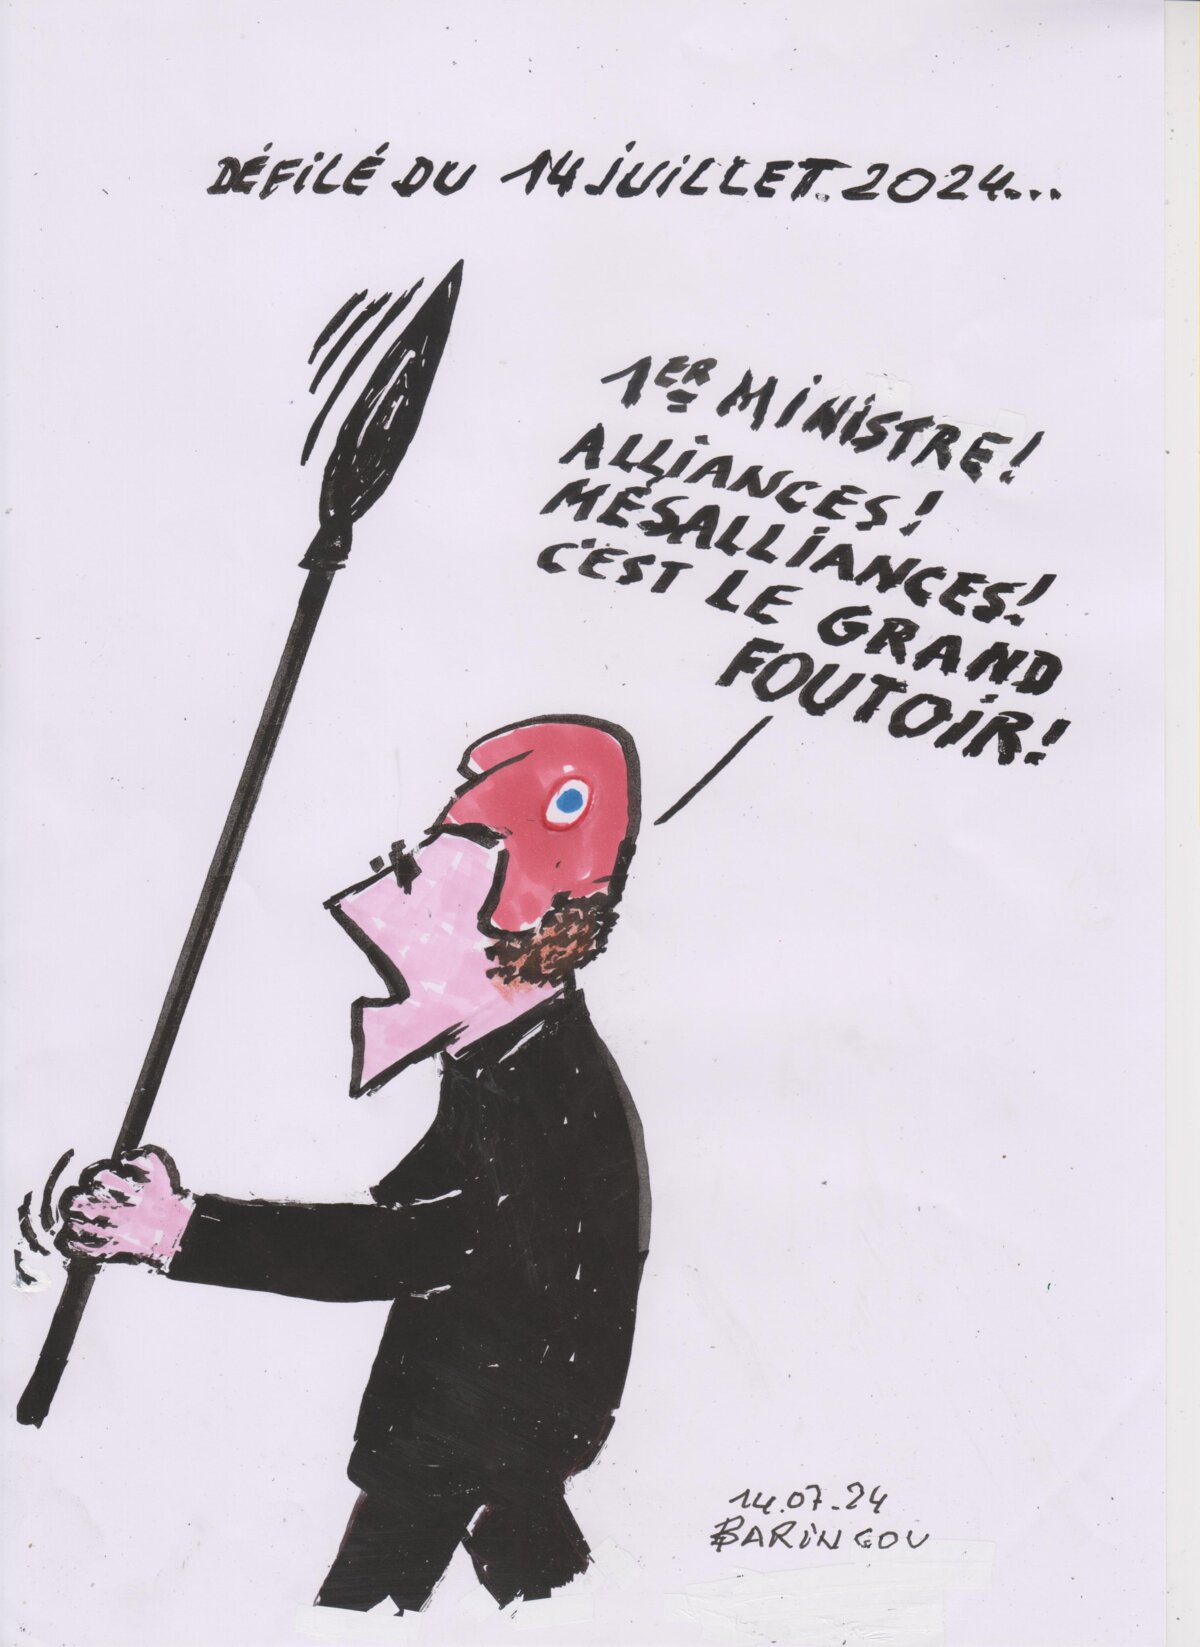 DÉFiLÉ DU 14 JUiLLET.2024...
1ER MiNiSTRE!
ALLiANCES!
MÉSALLiANCES!
C'EST LE GRAND
FOUTOiR!
14.07.24
BARiNGOU